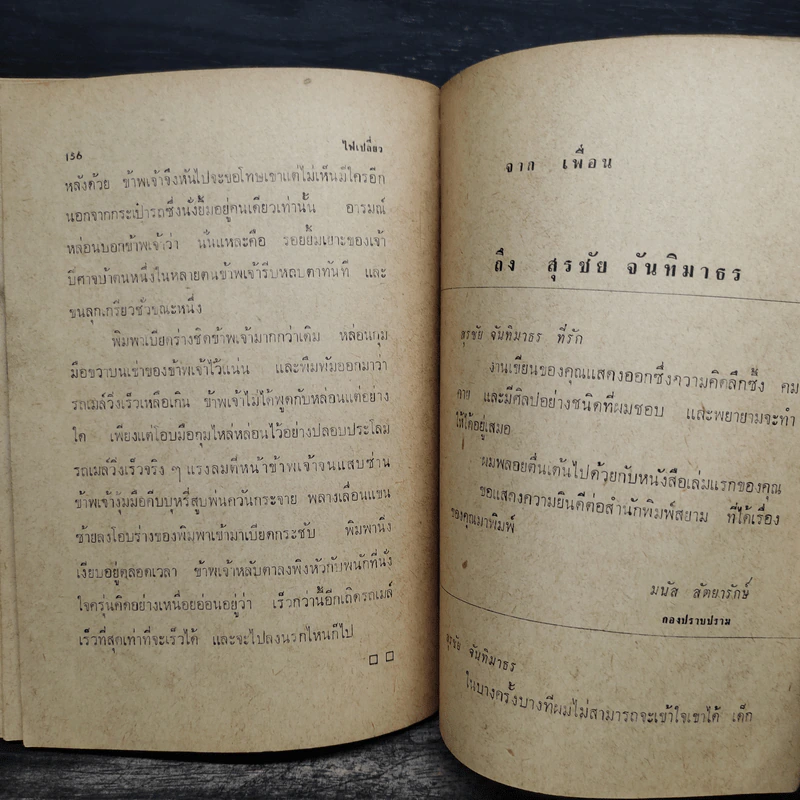 156
ไฟเปลี่ยว
หลังด้วย ข้าพเจ้าจึงหันไปจะขอโทษเขาแต่ไม่เห็นมีใครอีก
นอกจากกระเป๋ารถซึ่งนั่งยิ้มอยู่คนเดียวเท่านั้น อารมณ์
หล่อนบอกข้าพเจ้าว่า นั่นแหละคือ รอยยิ้มเยาะของเจ้า
ปีศาจบ้าตนหนึ่งในหลายตนข้าพเจ้ารีบหลบตาทันที และ
ขนลุกเกรียวชั่วขณะหนึ่ง
พิมพาเบียดร่างชิดข้าพเจ้ามากกว่าเดิม หล่อนกุม
มือขวาบนเข่าของข้าพเจ้าไว้แน่น และพึมพัมออกมาว่า
รถเมล์วิ่งเร็วเหลือเกิน ข้าพเจ้าไม่ได้พูดกับหล่อนแต่อย่าง
ใด เพียงแต่โอบมือกุมไหล่หล่อนไว้อย่างปลอบประโลม
รถเมล์วิ่งเร็วจริง ๆ แรงลมตีหน้าข้าพเจ้าจนแสบซ่าน
ข้าพเจ้างุ้มมือคีบบุหรี่สูบพ่นควันกระจาย พลางเลื่อนแขน
ซ้ายลงโอบร่างของพิมพาเข้ามาเบียดกระชับ พิมพานิ่ง
เงียบอยู่ตลอดเวลา ข้าพเจ้าหลับตาลงพิงหัวกับพนักที่นั่ง
ใจครุ่นคิดอย่างเหนื่อยอ่อนอยู่ว่า เร็วกว่านี้อีกเถิดรถเมล์
เร็วที่สุดเท่าที่จะเร็วได้ และจะไปลงนรกไหนก็ไป
จาก เพื่อน
ถึง สุรชัย จันทิมาธร
สุรชัย จันทิมาธร ที่รัก
งานเขียนของคุณแสดงออกซึ่งความคิดลึกซึ้ง คม
คาย และมีศิลปอย่างชนิดที่ผมชอบ และพยายามจะทำ
ให้ได้อยู่เสมอ
ผมพลอยตื่นเต้นไปด้วยกับหนังสือเล่มแรกของคุณ
ขอแสดงความยินดีต่อสำนักพิมพ์สยาม ที่ได้เรื่อง
ของคุณมาพิมพ์
มนัส สัตยารักษ์
กองปราบปราม
สุรชัย จันทิมาธร
ในบางครั้งบางทีผมไม่สามารถจะเข้าใจเขาได้ เด็ก